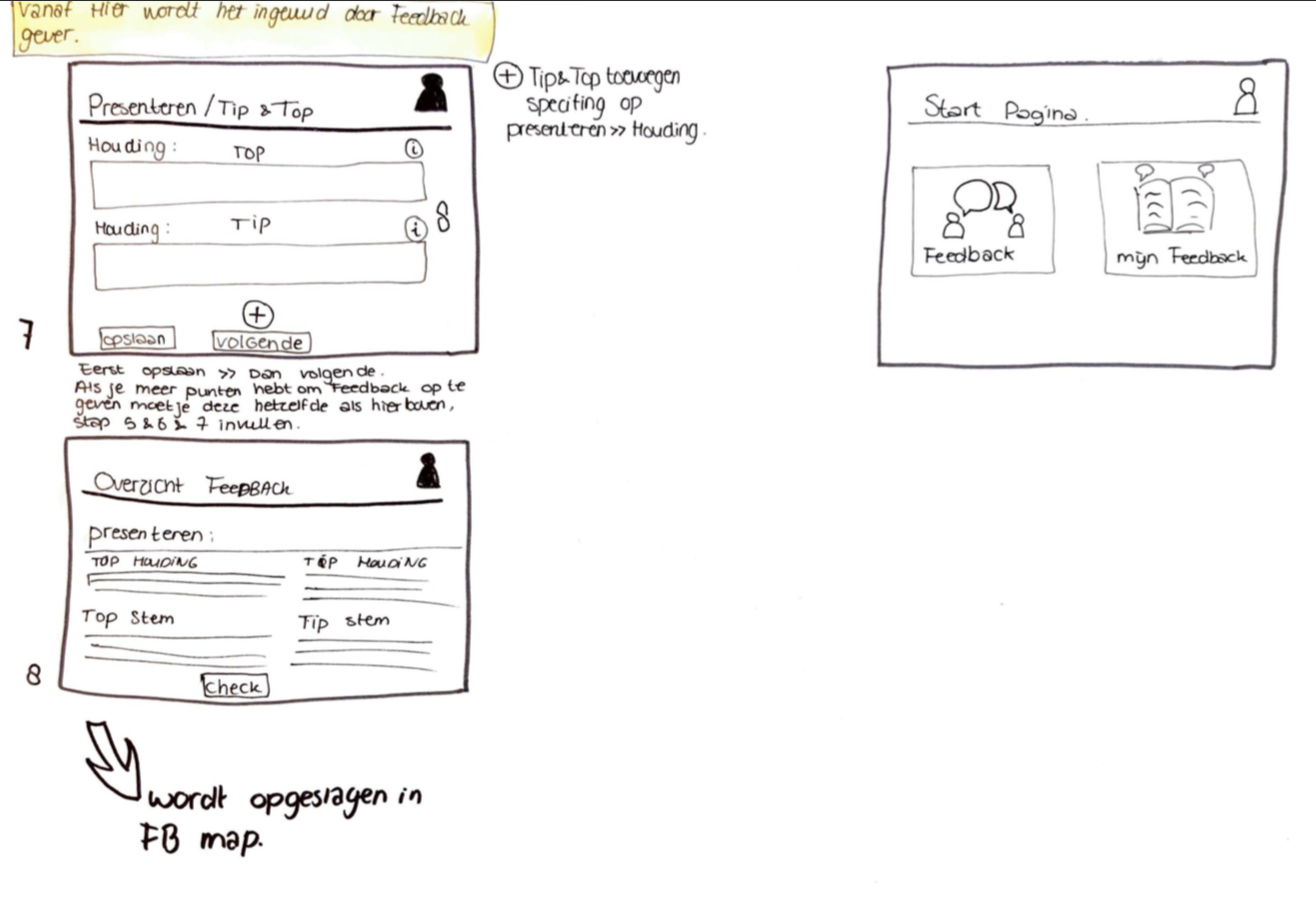 Vanaf Hier wordt het ingevuld door Feedback
gever.
Presenteren / Tip & Top
Houding: TOP i
Houding: Tip i
8
+
opslaan volgende
7
+ Tip & Top toevoegen
specifing op
presenteren >> Houding.
Eerst opslaan >> Dan volgende.
Als je meer punten hebt om Feedback op te
geven moet je deze hetzelfde als hierboven,
stap 5 & 6 & 7 invullen.
Overzicht FeedBAck
presenteren:
TOP HOUDING TIP HOUDING
Top Stem Tip stem
check
8
wordt opgeslagen in
FB map.
Start Pagina.
Feedback mijn Feedback